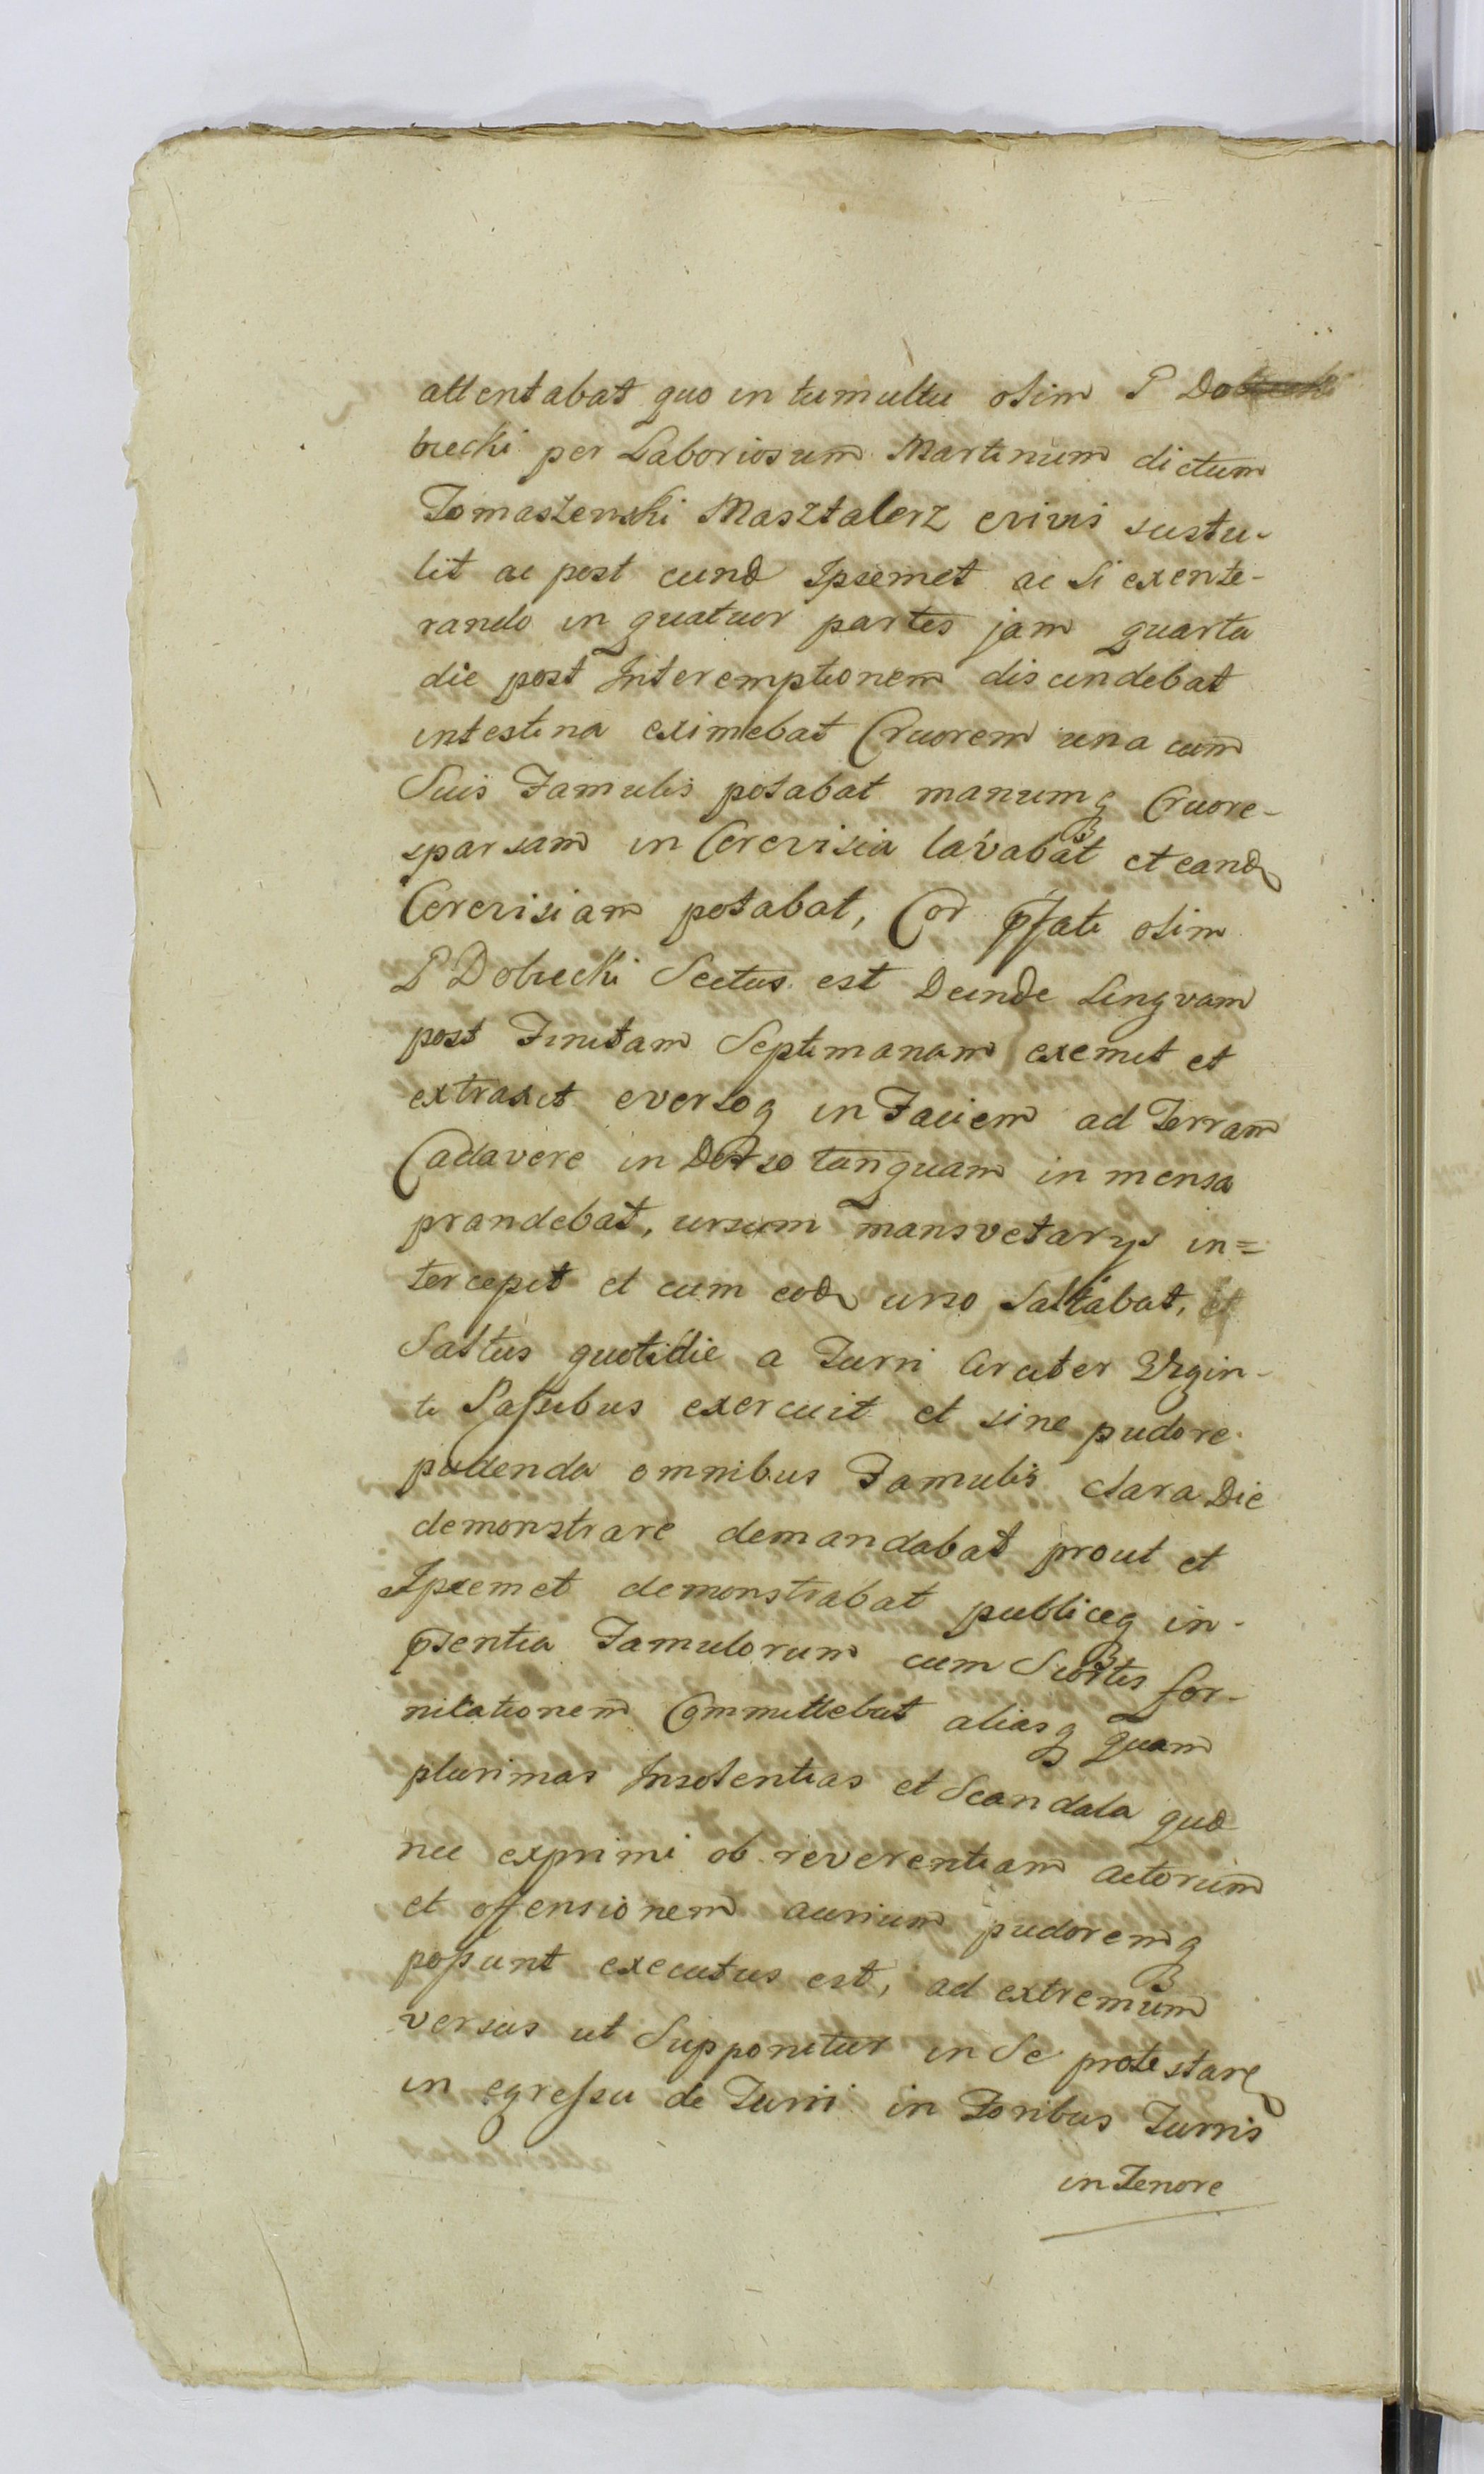 attentabat quo in tumultu olim P Do
brecki per Laboriosum Martinum dictum
Tomaszewski Masztalerz e vivis sustu-
lit ac post eund Ipsemet ac Si exente-
rando in quatuor partes jam quarta
die post Interemptionem discindebat
intestina eximebat Cruorem una cum
Suis Famulis potabat manumq Cruore-
sparsam in Cerevisia lavabat et eand
Cerevisiam potabat, Cor pfati olim
P Dobrecki Sectus est Deinde Lingvam
post Finitam Septimanam exemit et
extraxit eversoq in Faciem ad Terram
Cadavere in Dorso tanquam in mensa
prandebat, ursum mansvetarys in=
tercepit et cum eod urso Saltabat, et
Saltus quotidie a Turri Circiter Vigin-
ti Passibus exercuit et sine pudore
pudenda omnibus Famulis clara Die
demonstrare demandabat prout et
Ipsemet demonstrabat publiceq in-
psentia Famulorum cum Scortis for-
nicationem Committebat aliasq quam
plurimas Insolentias et Scandala quæ
nec exprimi ob reverentiam actorum
et offensionem aurium pudoremq
possunt executus est, ad extremum
versus ut Supponitur in Se protestan
in egressu de Turri in Foribus Turris
in Tenore